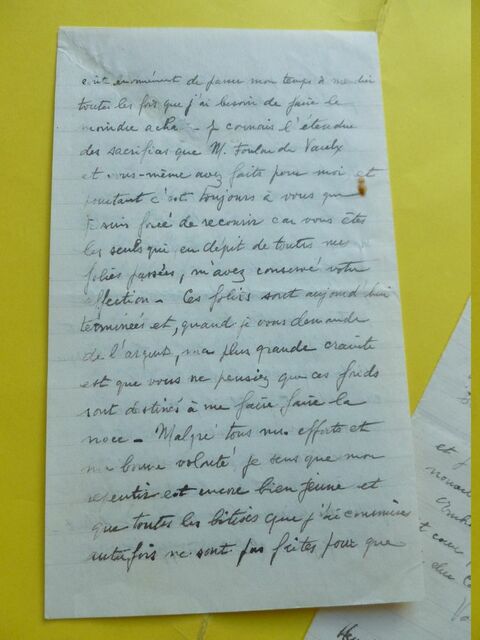 énormément de passer mon temps à
toutes les fois que j'ai besoin de faire le
moindre acha - Je connais l'étendue
des sacrifices que M. Foulon de Vaulx
et vous-même avez faits pour moi et
pourtant c'est toujours à vous que
je suis forcé de recourir car vous êtes
les seuls qui en dépit de toutes mes
folies passées, m'avez conservé votre
affection - Ces folies sont aujourd'hui
terminées et, quand je vous demande
de l'argent, ma plus grande crainte
est que vous ne pensiez que ces fonds
sont destinés à me faire faire la
noce - Malgré tous mes efforts et
ma bonne volonté, je sens que mon
repentir est encore bien jeune et
que toutes les bêtises que j'ai commises
autrefois ne sont pas faites pour que
et